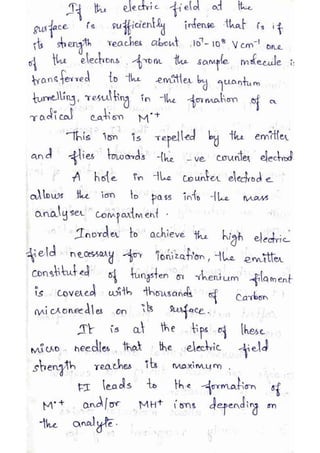 If the electric field at the
surface is sufficiently intense that is if
its strength reaches about 10⁷- 10⁸ V cm⁻¹ one
of the electrons from the sample molecule is
transferred to the emitter by quantum
tunelling, resulting in the formation of a
radical cation M•+
This ion is repelled by the emitter
and flies towards the -ve counter electrod
A hole in the counter electrode
allows the ion to pass into the mass
analyser compartment.
Inorder to achieve the high electric
field necessary for ionization, the emitter
constituted of tungsten or rhenium filament
is covered with thousands of carbon
microneedles on its surface.
It is at the tips of these
micro needles, that the electric field
strength reaches its maximum.
FI leads to the formation of
M•+ and/or MH+ ions depending on
the analyte.